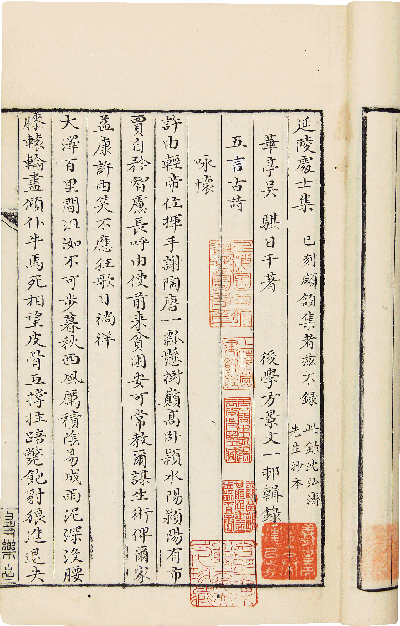 延陵處士集 已刻顑頷集者茲不錄 此錄沈
先生沙本
華亭吳騏日千著 後學方景文一邨輯錄
五言古詩
咏懷
許由輕帝位揮手謝陶唐一瓢懸樹巔高卧潁水陽潁陽有市
賈自矜智慮長呼由使前來貧困安可常教爾謀生術俾爾家
益康許由笑不應狂歌日徜徉
大澤百里間沮洳不可步暮秋西風厲積陰易成雨泥深沒腰
膝轅輪盡傾仆牛馬死相望皮骨互撐拄踣斃飽豺狼進退失